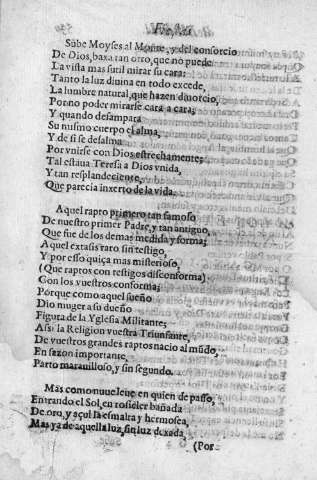 Sube Moyses al Monte, y del consorcio
De Dios, baxa tan otro, que no puede
La vista mas sutil mirar su cara:
Tanto la luz diuina en todo excede,
La lumbre natural, que hazen diuorcio,
Por no poder mirarse cara a cara;
Y quando desampara
Su mismo cuerpo el alma,
Y de si se desalma
Por vnirse con Dios estrechamente:
Tal estaua Teresa a Dios vnida,
Y tan resplandeciente,
Que parecia inxerto de la vida.
Aquel rapto primero tan famoso
De nuestro primer Padre, y tan antiguo,
Que fue de los demas medida y forma;
Aquel extasis raro sin testigo,
Y por esso quiça mas misterioso,
(Que raptos con testigos disconforma)
Con los vuestros conforma;
Porque como aquel sueño
Dio muger a su dueño
Figura de la Yglesia Militante;
Assi la Religion vuestra Triunfante,
De vuestros grandes raptos nacio al mũdo,
En sazon importante,
Parto marauilloso, y sin segundo.
Mas como nuue leue en quien de passo,
Entrando el Sol, en rosicler bañada
De oro, y açul la esmalta y hermosea,
Mas ya de aquella luz, sin luz dexada,
(Por